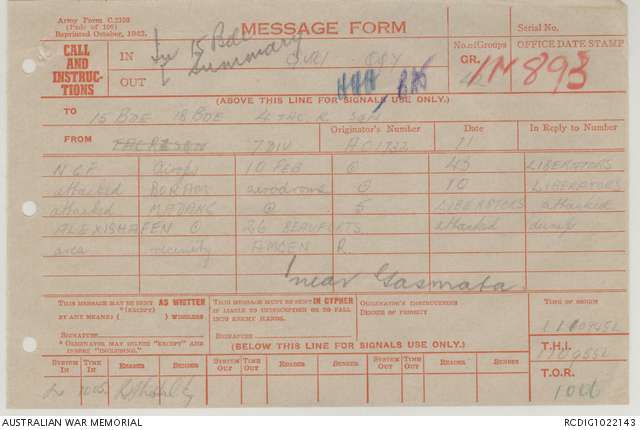 Army Form C.2128
(Pads of 100)
Reprinted October, 1942.
MESSAGE FORM
Serial No.
CALL
AND
INSTRUC-
TIONS
IN
OUT
15 Bde
Summary
No. of Groups
GR.
OFFICE DATE STAMP
IN 893
(ABOVE THIS LINE FOR SIGNALS USE ONLY.)
TO
15 BDE 18 BDE
FROM
7 DIV
Originator's Number
AC1722
Date
11
In Reply to Number
NGF Airops 10 FEB @ 43 LIBERATORS
attacked BORAM aerodrome @ 10 LIBERATORS
attacked MADANG @ 5 LIBERATORS attacked
ALEXISHAFEN @ 26 BEAUFORTS attacked dumps
area vicinity AMGEN R
near Gasmata
THIS MESSAGE MAY BE SENT AS WRITTEN
(EXCEPT)
BY ANY MEANS ( ) WIRELESS
SIGNATURE
* ORIGINATOR MAY DELETE "EXCEPT" AND
INSERT "INCLUDING."
THIS MESSAGE MUST BE SENT IN CYPHER
IF LIABLE TO INTERCEPTION OR TO FALL
INTO ENEMY HANDS.
SIGNATURE
ORIGINATOR'S INSTRUCTIONS
DEGREE OF PRIORITY
TIME OF ORIGIN
110945L
(BELOW THIS LINE FOR SIGNALS USE ONLY.)
T.H.I.
110955L
SYSTEM IN TIME IN READER SENDER SYSTEM OUT TIME OUT READER SENDER SYSTEM OUT TIME OUT READER SENDER
T.O.R.
1005
AUSTRALIAN WAR MEMORIAL
RCDIG1022143